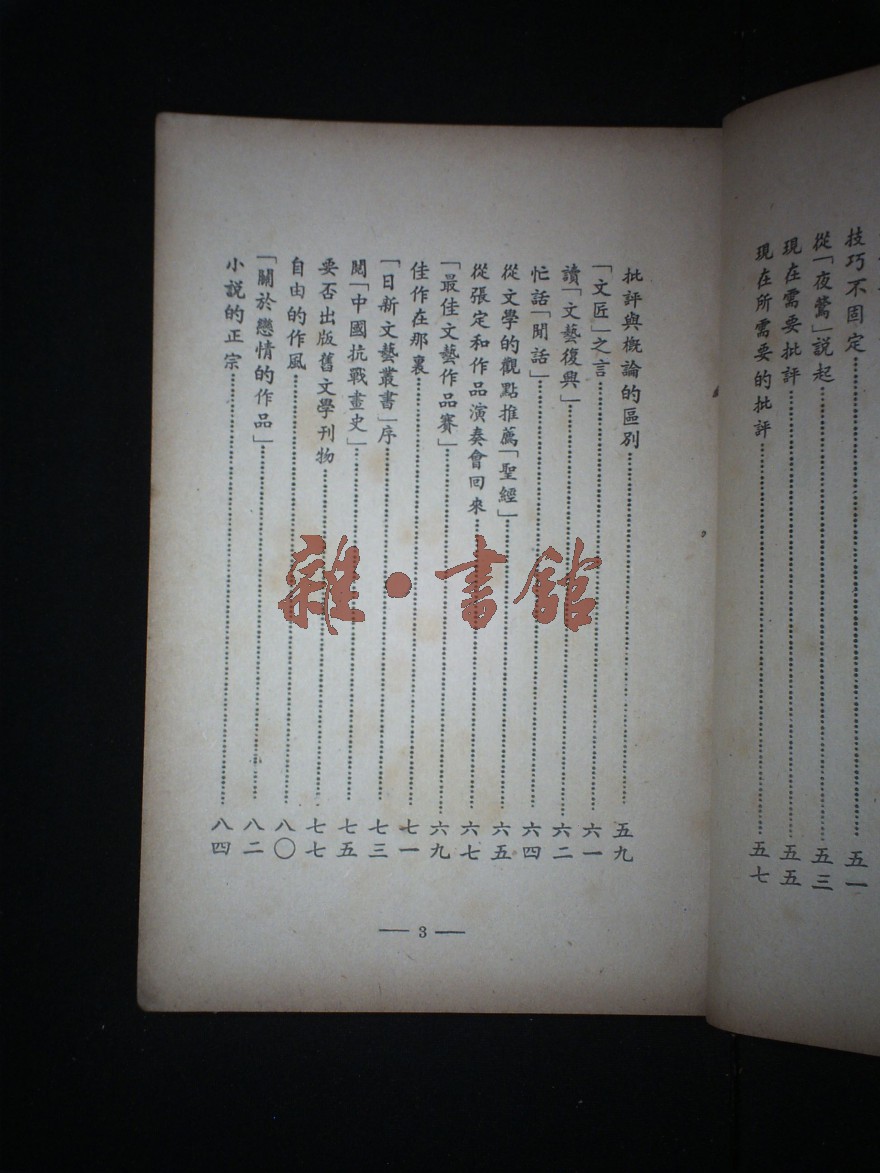 技巧不固定……五一
從「夜鶯」說起……五三
現在需要批評……五五
現在所需要的批評……五七
批評與概論的區別……五九
「文匠」之言……六一
讀「文藝復興」……六二
忙話「閒話」……六四
從文學的觀點推薦「聖經」……六五
從張定和作品演奏會回來……六七
「最佳文藝作品賽」……六九
佳作在那裏……七一
「日新文藝叢書」序……七三
閱「中國抗戰畫史」……七五
要否出版舊文學刊物……七七
自由的作風……八〇
「關於戀情的作品」……八二
小說的正宗……八四
— 3 —
雜·書館